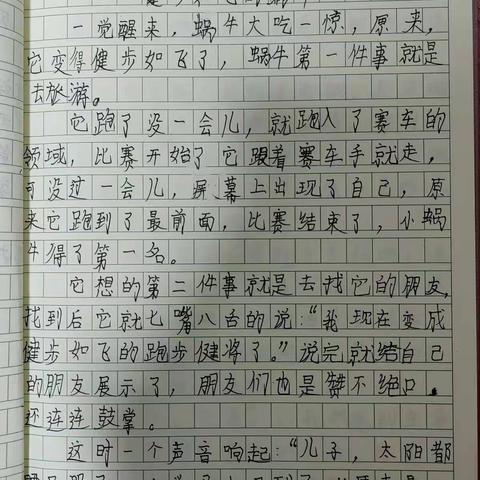 一觉醒来，蜗牛大吃一惊，原来，
它变得健步如飞了，蜗牛第一件事就是
去旅游。
它跑了没一会儿，就跑入了赛车的
领域，比赛开始了它跟着赛车手就走，
可没过一会儿，屏幕上出现了自己，原
来它跑到了最前面，比赛结束了，小蜗
牛得了第一名。
它想的第二件事就是去找它的朋友，
找到后它就七嘴八舌的说：“我现在变成
健步如飞的跑步健将了。”说完就给自己
的朋友展示了，朋友们也是赞不绝口，
还连连鼓掌。
这时一个声音响起：“儿子，太阳都